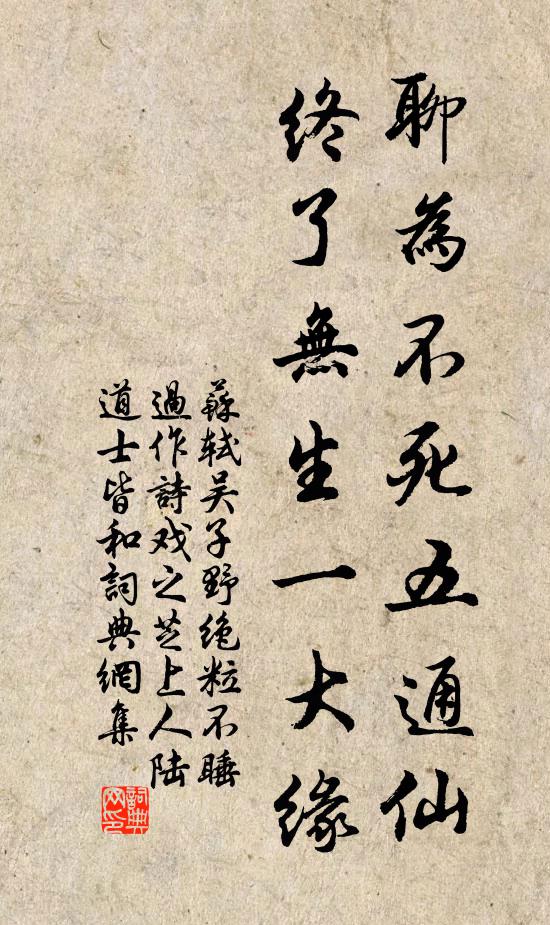 聊為不死五通仙
終了無生一大緣
蘇軾吴子野绝粒不睡
過作詩戏之芝上人陆
道士皆和詞典網集
詞典网印